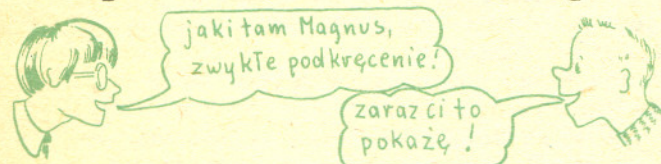 jaki tam Magnus,
zwykłe podkręcenie!
zaraz ci to
pokażę!